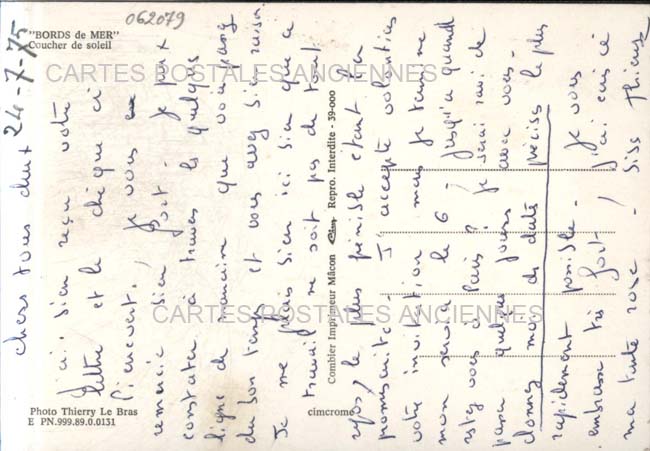 "BORDS de MER"
Coucher de soleil
062079
24-7-75
chers tous deux
J'ai bien reçu votre
lettre et le chèque ci
l'encart. Je vous en
remercie bien fort. Je peux
constater à travers les quelques
lignes de que vous
du bon temps et vous avez bien raison.
Je me plais bien ici bien que le
travail ne soit pas de tout
repos, le plus pénible étant la
promiscuité. J'accepte volontiers
votre invitation mais je termine
mon service le 6 - jusqu'à quand
restez vous à Paris ? Je serai ravi de
passer quelques jours avec vous -
donnez moi des dates précises le plus
rapidement possible - Je vous
embrasse très fort - J'ai écrit à
ma tante rose - Bises Thierry
Combier Imprimeur Mâcon Cim Repro. Interdite - 39-000
Photo Thierry Le Bras
E PN.999.89.0.0131
cimcrome
CARTES POSTALES ANCIENNES
CARTES POSTALES ANCIENNES